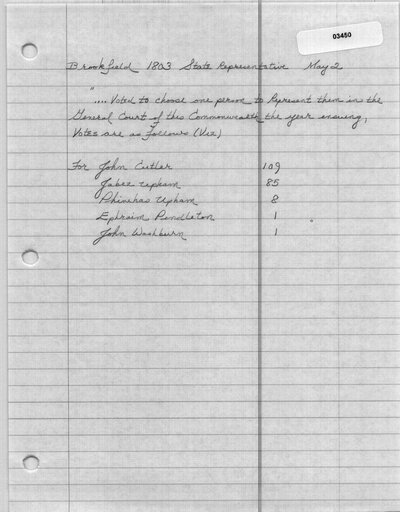 03450
Brookfield 1803 State Representative May 2
".... Voted to choose one person to Represent them in the
General Court of this Commonwealth the year ensuing,
Votes are as follows (Viz)
For John Cutler 109
Jabez Upham 85
Phinehas Upham 8
Ephraim Pendleton 1
John Washburn 1